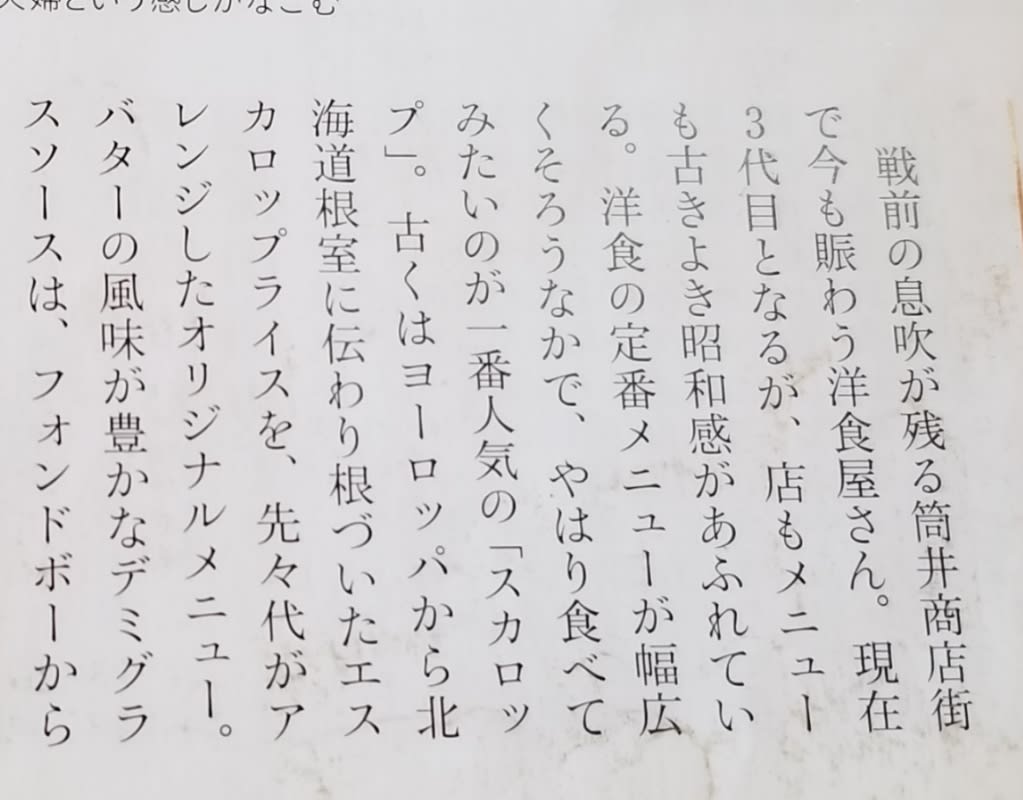 夫婦という感じがなごむ
戦前の息吹が残る筒井商店街
で今も賑わう洋食屋さん。現在
3代目となるが、店もメニュー
も古きよき昭和感があふれてい
る。洋食の定番メニューが幅広
くそろうなかで、やはり食べて
みたいのが一番人気の「スカロッ
プ」。古くはヨーロッパから北
海道根室に伝わり根づいたエス
カロップライスを、先々代がア
レンジしたオリジナルメニュー。
バターの風味が豊かなデミグラ
スソースは、フォンドボーから